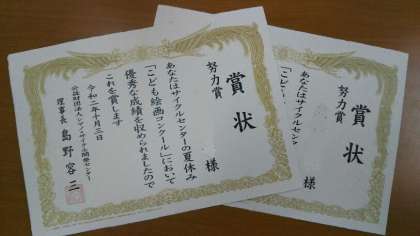 賞状
努力賞
様
あなたはサイクルセンターの夏休み
「こども絵画コンクール」において
優秀な成績を収められましたので
これを賞します
令和二年十月三日
公益財団法人シマノ・サイクル開発センター
理事長 島野容三
賞状
努力賞
様
あなたはサイクルセン
「こど